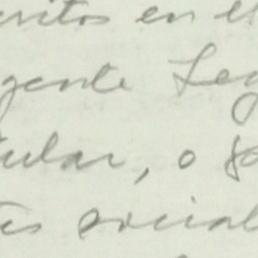 critos en el
gente Leg
cular, o s
tes social